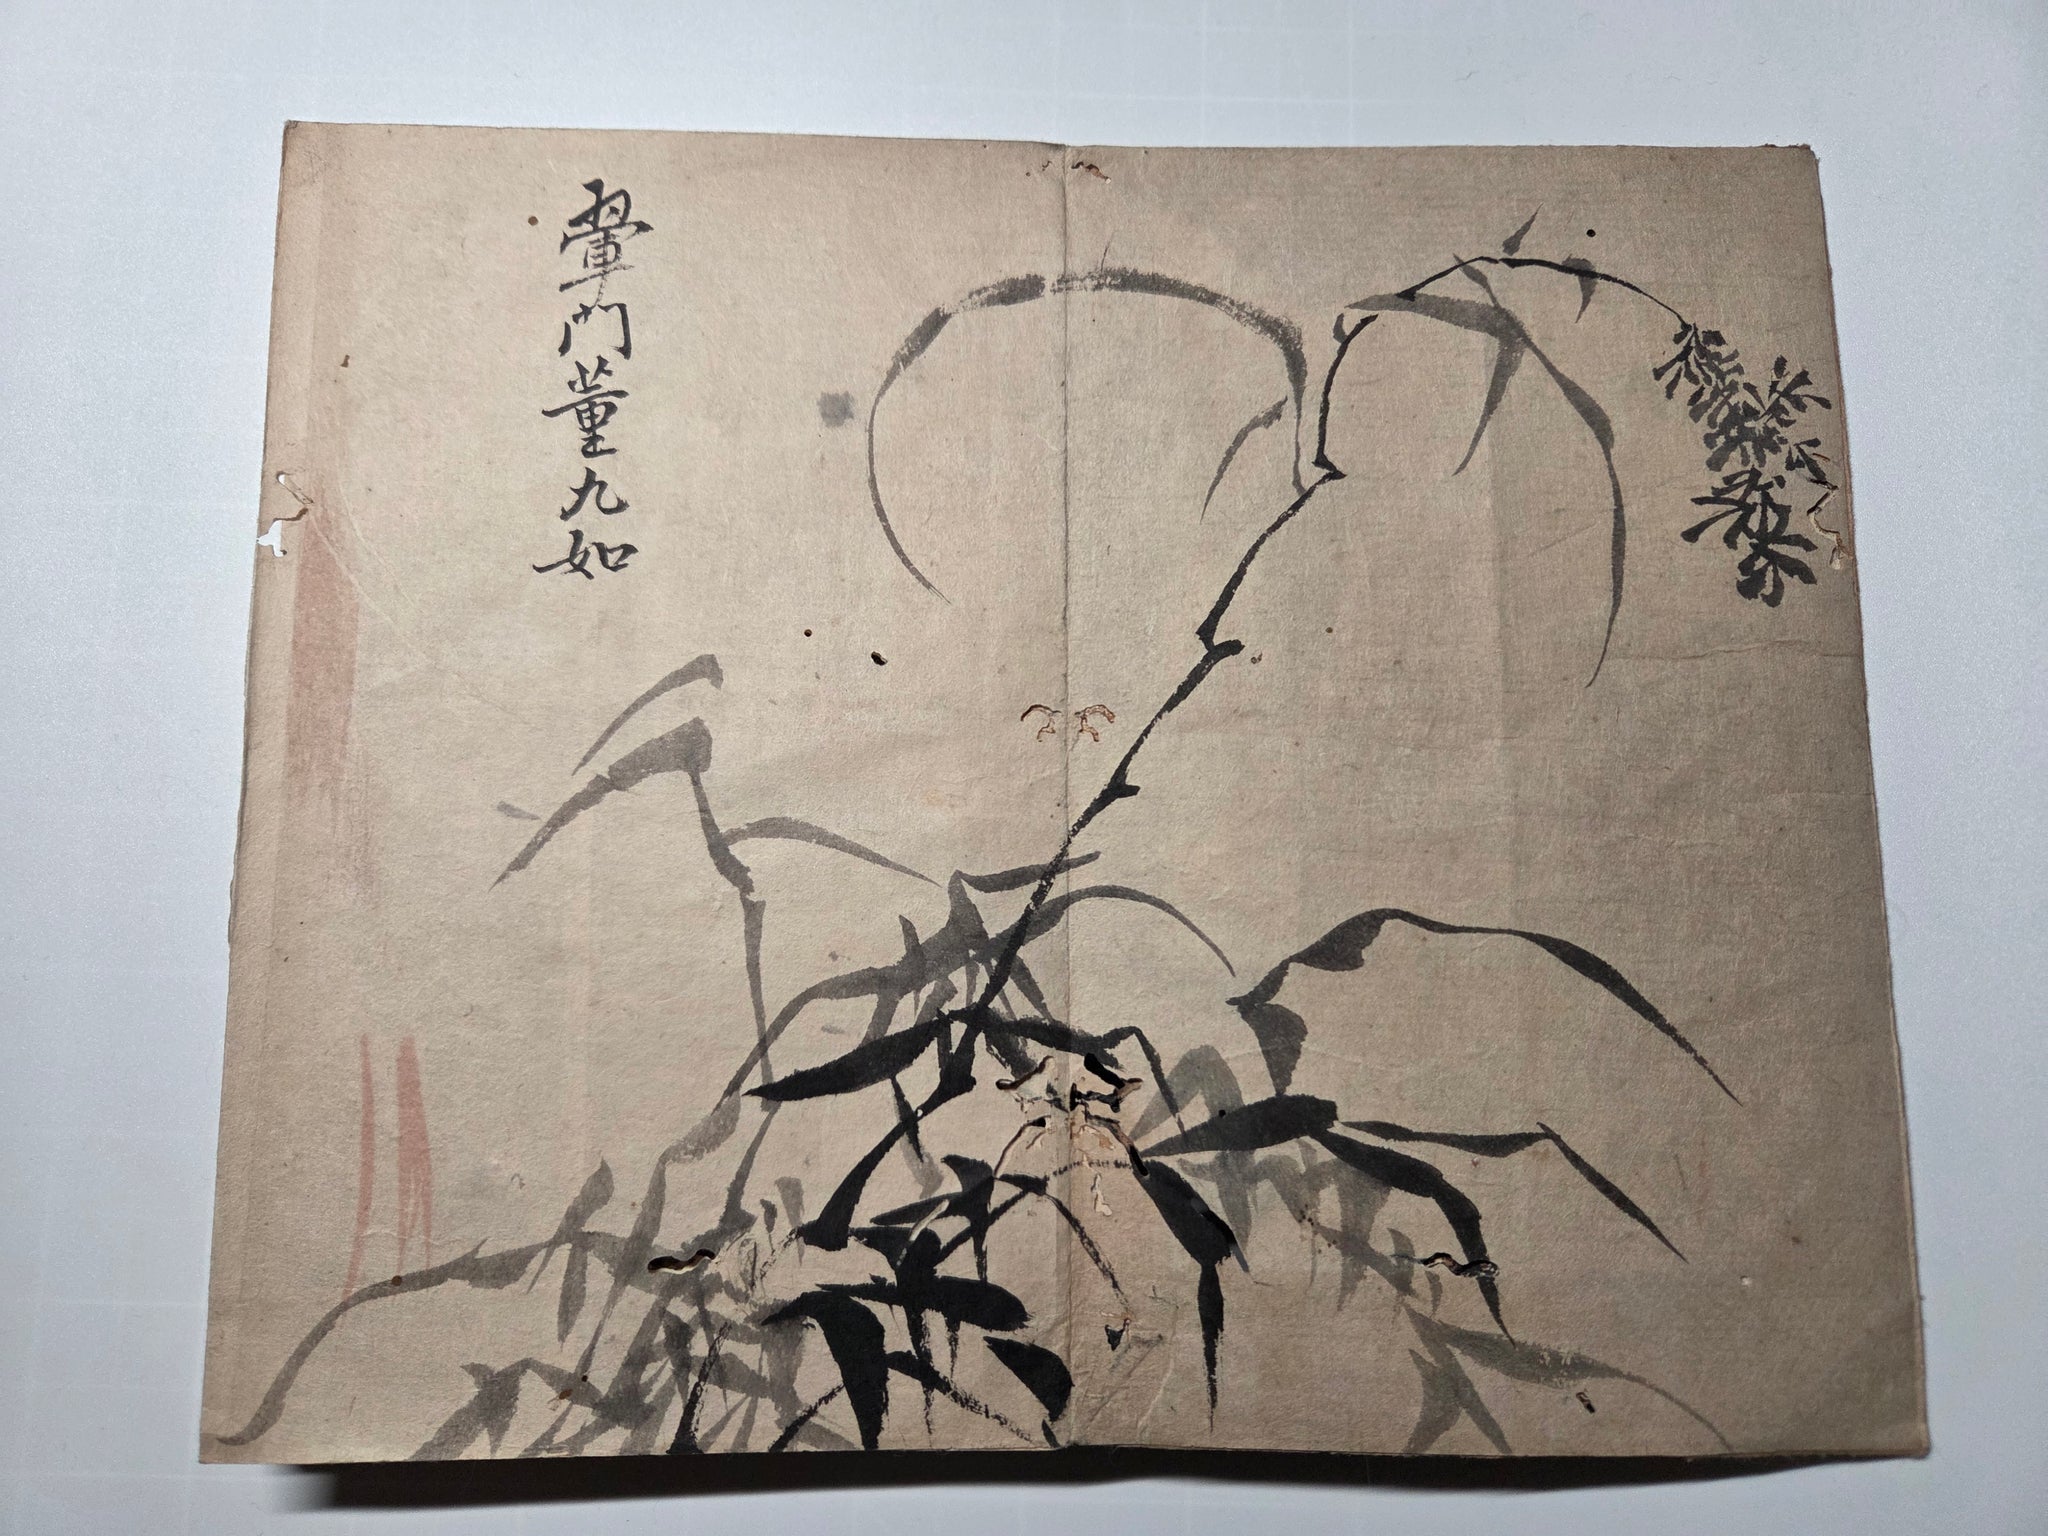 翬門董九如